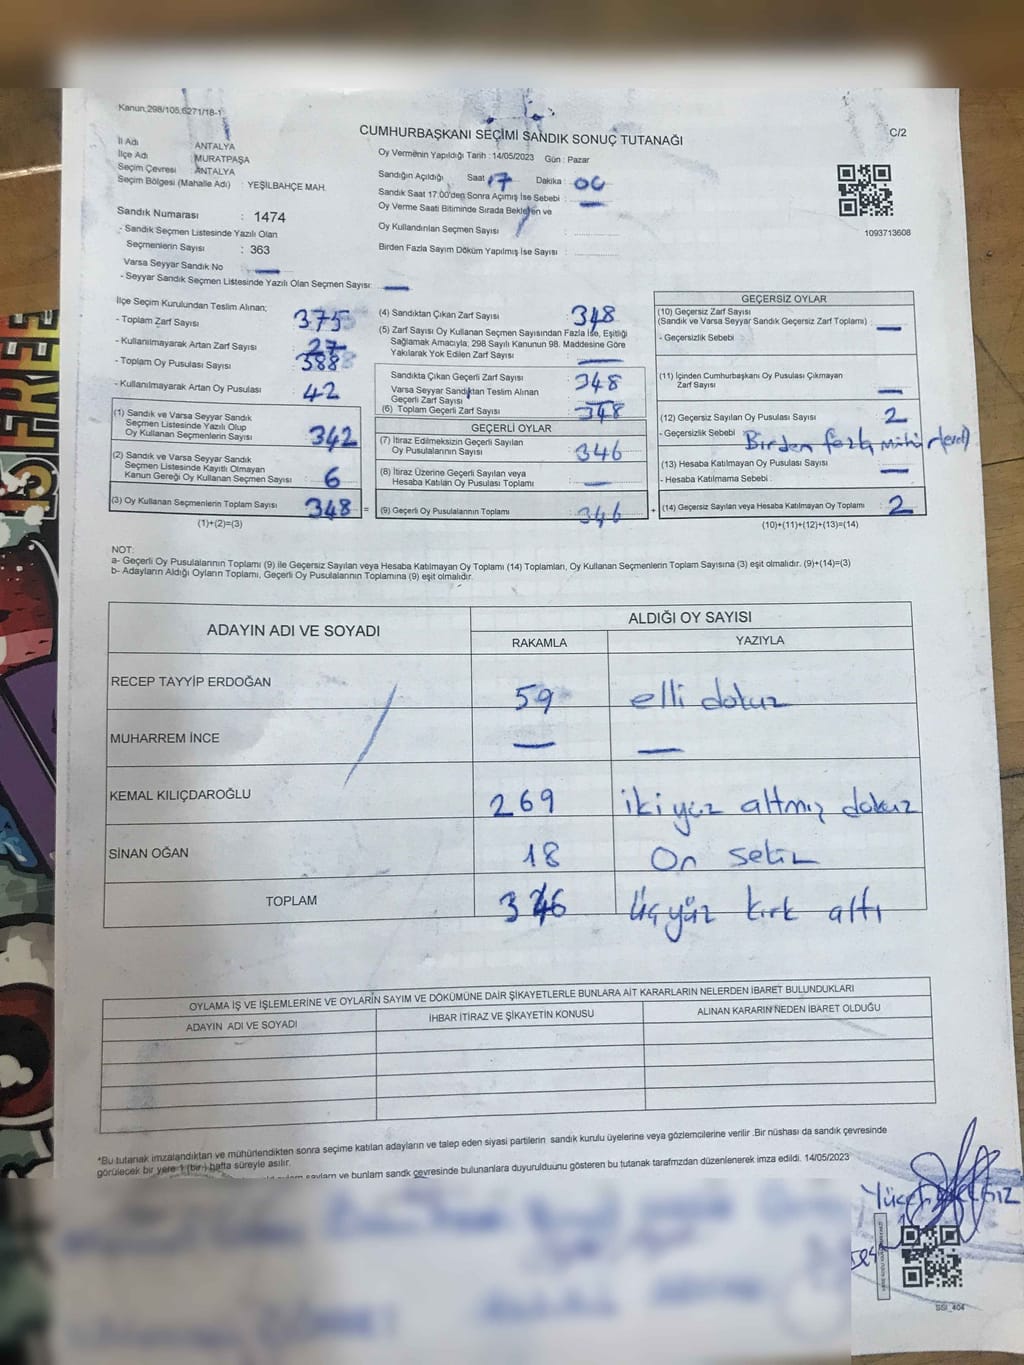 Kanun:298/105,6271/18-1
CUMHURBAŞKANI SEÇİMİ SANDIK SONUÇ TUTANAĞI
C/2
İl Adı ANTALYA
İlçe Adı MURATPAŞA
Seçim Çevresi ANTALYA
Seçim Bölgesi (Mahalle Adı) : YEŞİLBAHÇE MAH.
Sandık Numarası : 1474
- Sandık Seçmen Listesinde Yazılı Olan
Seçmenlerin Sayısı : 363
Varsa Seyyar Sandık No —
- Seyyar Sandık Seçmen Listesinde Yazılı Olan Seçmen Sayısı: —
Oy Vermenin Yapıldığı Tarih : 14/05/2023 Gün : Pazar
Sandığın Açıldığı Saat 17 Dakika : 00
Sandık Saat 17:00'den Sonra Açımış İse Sebebi : —
Oy Verme Saati Bitiminde Sırada Bekleyen ve
Oy Kullandırılan Seçmen Sayısı :
Birden Fazla Sayım Döküm Yapılmış İse Sayısı :
1093713608
İlçe Seçim Kurulundan Teslim Alınan;
- Toplam Zarf Sayısı 375
- Kullanılmayarak Artan Zarf Sayısı 27
- Toplam Oy Pusulası Sayısı 388
- Kullanılmayarak Artan Oy Pusulası 42
(1) Sandık ve Varsa Seyyar Sandık
Seçmen Listesinde Yazılı Olup
Oy Kullanan Seçmenlerin Sayısı 342
(2) Sandık ve Varsa Seyyar Sandık
Seçmen Listesinde Kayıtlı Olmayan
Kanun Gereği Oy Kullanan Seçmen Sayısı 6
(3) Oy Kullanan Seçmenlerin Toplam Sayısı 348 =
(1)+(2)=(3)
(4) Sandıktan Çıkan Zarf Sayısı : 348
(5) Zarf Sayısı Oy Kullanan Seçmen Sayısından Fazla İse, Eşitliği
Sağlamak Amacıyla, 298 Sayılı Kanunun 98. Maddesine Göre
Yakılarak Yok Edilen Zarf Sayısı : —
Sandıkta Çıkan Geçerli Zarf Sayısı : 348
Varsa Seyyar Sandıktan Teslim Alınan
Geçerli Zarf Sayısı : —
(6) Toplam Geçerli Zarf Sayısı : 348
GEÇERLİ OYLAR
(7) İtiraz Edilmeksizin Geçerli Sayılan
Oy Pusulasının Sayısı : 346
(8) İtiraz Üzerine Geçerli Sayılan veya
Hesaba Katılan Oy Pusulası Toplamı : —
(9) Geçerli Oy Pusulalarının Toplamı : 346 +
GEÇERSİZ OYLAR
(10) Geçersiz Zarf Sayısı
(Sandık ve Varsa Seyyar Sandık Geçersiz Zarf Toplamı) : —
- Geçersizlik Sebebi
(11) İçinden Cumhurbaşkanı Oy Pusulası Çıkmayan
Zarf Sayısı —
(12) Geçersiz Sayılan Oy Pusulası Sayısı 2
- Geçersizlik Sebebi Birden fazla mühür
(13) Hesaba Katılmayan Oy Pusulası Sayısı —
- Hesaba Katılmama Sebebi :
(14) Geçersiz Sayılan veya Hesaba Katılmayan Oy Toplamı : 2
(10)+(11)+(12)+(13)=(14)
NOT:
a- Geçerli Oy Pusulalarının Toplamı (9) ile Geçersiz Sayılan veya Hesaba Katılmayan Oy Toplamı (14) Toplamları, Oy Kullanan Seçmenlerin Toplam Sayısına (3) eşit olmalıdır. (9)+(14)=(3)
b- Adayların Aldığı Oyların Toplamı, Geçerli Oy Pusulalarının Toplamına (9) eşit olmalıdır.
ADAYIN ADI VE SOYADI ALDIĞI OY SAYISI
RAKAMLA YAZIYLA
RECEP TAYYİP ERDOĞAN 59 elli dokuz
MUHARREM İNCE — —
KEMAL KILIÇDAROĞLU 269 iki yüz altmış dokuz
SİNAN OĞAN 18 On sekiz
TOPLAM 346 Üç yüz kırk altı
OYLAMA İŞ VE İŞLEMLERİNE VE OYLARIN SAYIM VE DÖKÜMÜNE DAİR ŞİKAYETLERLE BUNLARA AİT KARARLARIN NELERDEN İBARET BULUNDUKLARI
ADAYIN ADI VE SOYADI İHBAR İTİRAZ VE ŞİKAYETİN KONUSU ALINAN KARARIN NEDEN İBARET OLDUĞU
*Bu tutanak imzalandıktan ve mühürlendikten sonra seçime katılan adayların ve talep eden siyasi partilerin sandık kurulu üyelerine veya gözlemcilerine verilir .Bir nüshası da sandık çevresinde
görülecek bir yere 1 (bir) hafta süreyle asılır.
sayıları ve bunların sandık çevresinde bulunanlara duyurulduğunu gösteren bu tutanak tarafımızdan düzenlenerek imza edildi. 14/05/2023
SSI_404